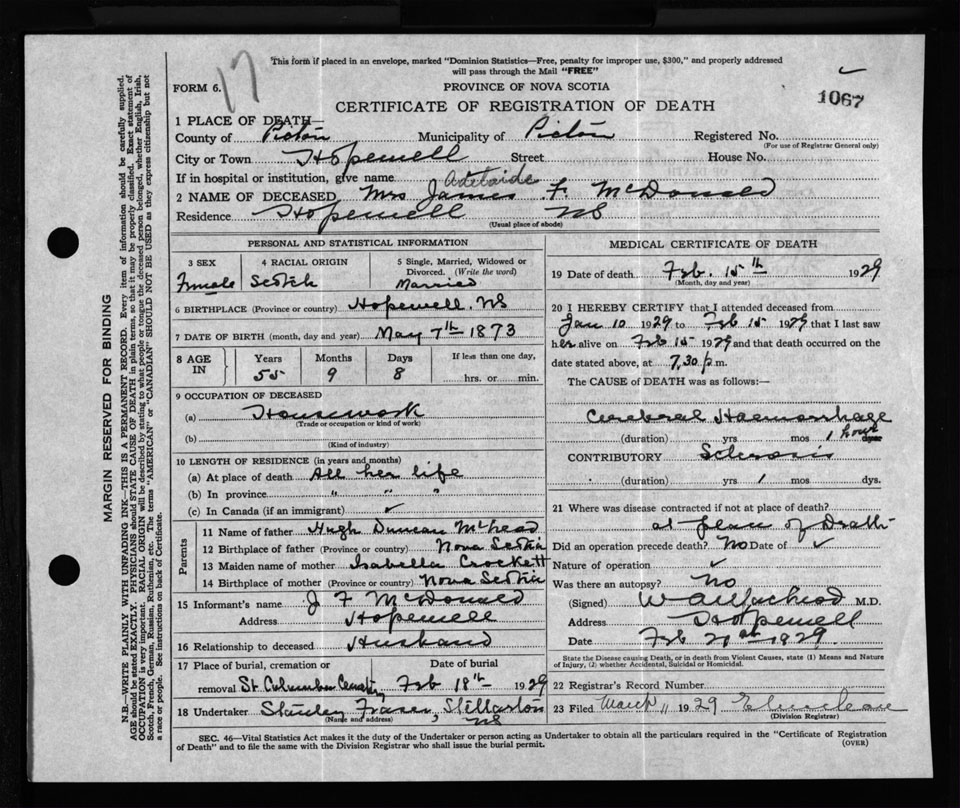 This form if placed in an envelope, marked "Dominion Statistics—Free, penalty for improper use, $300," and properly addressed
will pass through the Mail "FREE"
17
FORM 6.
PROVINCE OF NOVA SCOTIA
1067
CERTIFICATE OF REGISTRATION OF DEATH
1 PLACE OF DEATH—
County of Pictou Municipality of Pictou Registered No.
(For use of Registrar General only)
City or Town Hopewell Street House No.
If in hospital or institution, give name
Adelaide
2 NAME OF DECEASED Mrs James F. McDonald
Residence Hopewell NS
(Usual place of abode)
PERSONAL AND STATISTICAL INFORMATION
3 SEX 4 RACIAL ORIGIN 5 Single, Married, Widowed or
Divorced. (Write the word)
Female Scotch Married
6 BIRTHPLACE (Province or country) Hopewell. NS
7 DATE OF BIRTH (month, day and year) May 7th 1873
8 AGE IN Years Months Days If less than one day,
55 9 8 hrs. or min.
9 OCCUPATION OF DECEASED
(a) Housework
(Trade or occupation or kind of work)
(b)
(Kind of industry)
10 LENGTH OF RESIDENCE (in years and months)
(a) At place of death All her life
(b) In province " " "
(c) In Canada (if an immigrant) ✓
Parents
11 Name of father Hugh Duncan McLeod
12 Birthplace of father (Province or country) Nova Scotia
13 Maiden name of mother Isabella Crockett
14 Birthplace of mother (Province or country) Nova Scotia
15 Informant's name J F McDonald
Address Hopewell
16 Relationship to deceased Husband
17 Place of burial, cremation or Date of burial
removal St Columba Cemetry Feb 18th 1929
18 Undertaker Stanley Fraser, Stellarton
(Name and address) NS
MEDICAL CERTIFICATE OF DEATH
19 Date of death Feb. 15th 1929
(Month, day and year)
20 I HEREBY CERTIFY that I attended deceased from
Jan 10 1929 to Feb 15 1929 that I last saw
her alive on Feb 15 1929 and that death occurred on the
date stated above, at 7.30 p.m.
The CAUSE of DEATH was as follows:
Cerebral Haemorrhage
(duration) yrs mos 1 hour
CONTRIBUTORY Sclerosis
(duration) yrs 1 mos dys.
21 Where was disease contracted if not at place of death?
at place of Death
Did an operation precede death? No Date of ✓
Nature of operation ✓
Was there an autopsy? No
(Signed) M.D.
Address Hopewell
Date Feb 1929
State the Disease causing Death, or in death from Violent Causes, state (1) Means and Nature
of Injury, (2) whether Accidental, Suicidal or Homicidal.
22 Registrar's Record Number
23 Filed March 11 1929
(Division Registrar)
SEC. 46—Vital Statistics Act makes it the duty of the Undertaker or person acting as Undertaker to obtain all the particulars required in the "Certificate of Registration
of Death" and to file the same with the Division Registrar who shall issue the burial permit.
(OVER)
MARGIN RESERVED FOR BINDING
N.B.—WRITE PLAINLY, WITH UNFADING INK—THIS IS A PERMANENT RECORD. Every item of information should be carefully supplied.
AGE should be stated EXACTLY. PHYSICIANS should STATE CAUSE OF DEATH in plain terms, so that it may be properly classified. Exact statement of
OCCUPATION is very important. RACIAL ORIGIN will be described by stating to what people or tongue the deceased person belonged, whether English, Irish,
Scotch, French, German, Russian, Ruthenian, etc. The terms "AMERICAN" or "CANADIAN" SHOULD NOT BE USED as they express citizenship but not
a race or people. See instructions on back of Certificate.